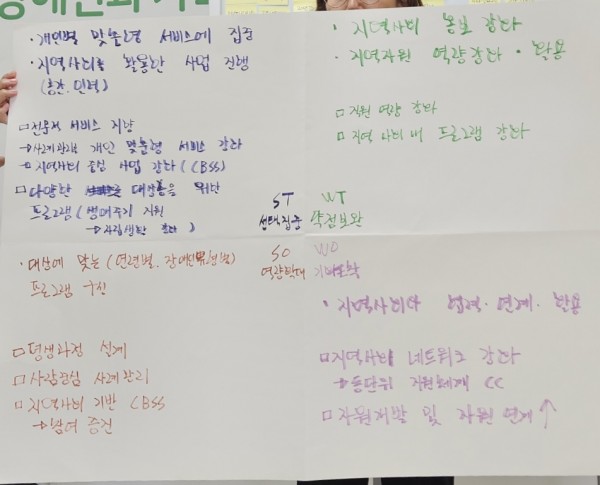 · 개인별 맞춤형 서비스에 집중
· 지역사회를 활용한 사업 진행
(공간. 인력)
□ 전문적 서비스 지향
→ 사례관리 개인 맞춤형 서비스 강화
→ 지역사회 중심 사업 강화 (CBSS)
□ 다양한 대상층을 위한
프로그램 (생애주기 지원
ST
선택집중
· 지역사회 홍보 강화
· 지역자원 역량강화 · 활용
□ 직원 역량 강화
□ 지역 사회 내 프로그램 강화
WT
약점보완
SO
역량확대
· 대상에 맞는 (연령별. 장애유형별)
프로그램 구성
□ 평생과정 설계
□ 사람중심 사례관리
□ 지역사회 기반 CBSS
→ 참여 증진
WO
· 지역사회와 협력 · 연계 · 활용
□ 지역사회 네트워크 강화
→ 동단위 자원체계
□ 자원개발 및 자원 연계 ↑